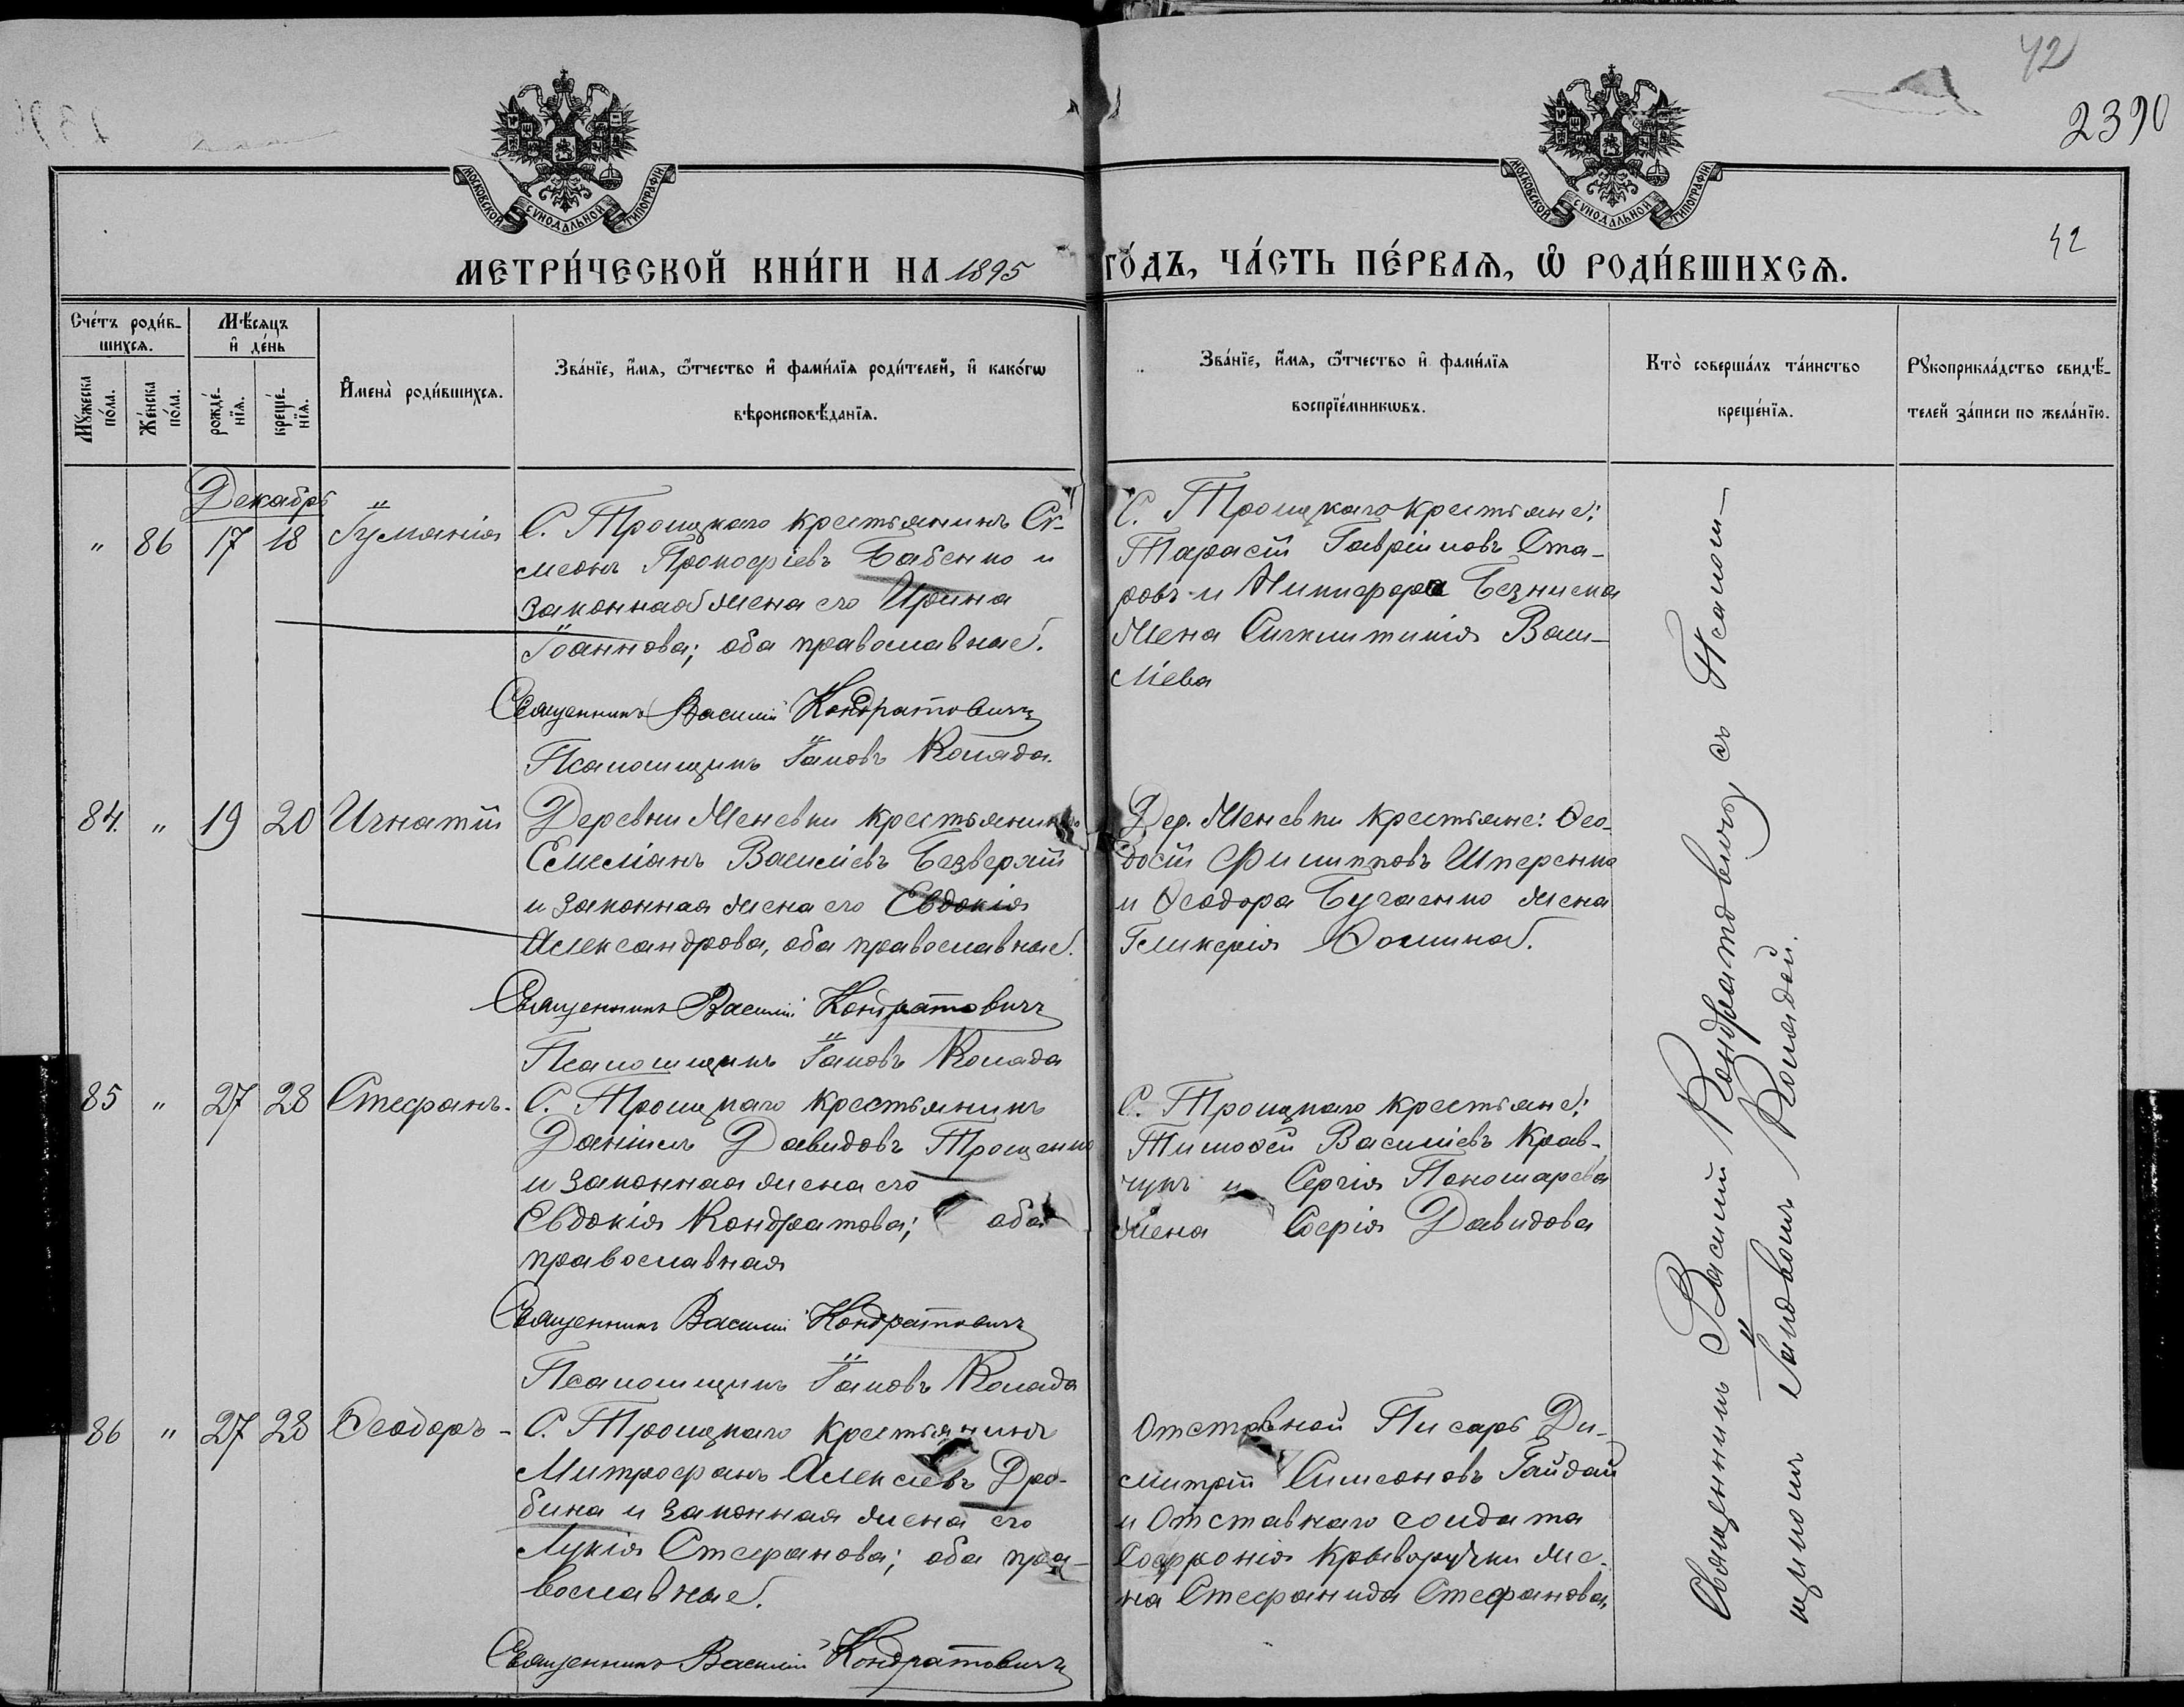 42
2390
МОСКОВСКОЙ СѴНОДАЛЬНОЙ ТИПОГРАФІИ.
МОСКОВСКОЙ СѴНОДАЛЬНОЙ ТИПОГРАФІИ.
42
МЕТРИ́ЧЕСКОЙ КНИ́ГИ НА 1895 ГО́ДЪ, ЧА́СТЬ ПЕ́РВАѦ, Ѡ РОДИ́ВШИХСѦ.
Сче́тъ роди́в-
шихсѧ.
Мꙋ́жеска по́ла.
Же́нска по́ла.
Мѣ́сѧцъ и де́нь
рожде́-
нїѧ.
креще́-
нїѧ.
Имена̀ роди́вшихсѧ.
Зва́нїе, и́мѧ, ѻ́тчество и фами́лїѧ роди́телей, и како́гѡ
вѣроисповѣ́данїѧ.
Зва́нїе, и́мѧ, ѻ́тчество и фами́лїѧ
воспрїе́мникѡвъ.
Кто̀ соверша́лъ та́инство
креще́нїѧ.
Рꙋкоприкла́дство свидѣ́-
телей за́писи по жела́нїю.
Декабрь
" 86 17 18 Іуліанія
С. Троицкаго крестьянинъ Си-
меонъ Прокофіевъ Бабенко и
законная жена его Ирина
Іоаннова; оба православные.
Священникъ Василій Кондратовичъ
Псаломщикъ Іаковъ Коляда.
С. Троицкаго крестьяне:
Тарасій Гавріиловъ Ста-
ровъ и Никифора Безниска
жена Синклитикія Васи-
ліева
84. " 19 20 Игнатій
Деревни Женевки крестьянинъ
Емиліанъ Василіевъ Безверхій
и законная жена его Евдокія
Александрова, оба православные.
Священникъ Василій Кондратовичъ
Псаломщикъ Іаковъ Коляда
Дер. Женевки крестьяне: Ѳео-
досій Филипповъ Шперенко
и Ѳеодора Бугаенко жена
Гликерія Ѳомина.
85 " 27 28 Стефанъ-
С. Троицкаго крестьянинъ
Даніилъ Давидовъ Трощенко
и законная жена его
Евдокія Кондратова; оба
православная
Священникъ Василій Кондратовичъ
Псаломщикъ Іаковъ Коляда
С. Троицкаго крестьяне:
Тимоѳей Василіевъ Крав-
чукъ и Сергія Пономарева
жена Софія Давидова
86 " 27 28 Ѳеодоръ-
С. Троицкаго крестьянинъ
Митрофанъ Алексіевъ Дро-
бина и законная жена его
Лукія Стефанова; оба пра-
вославные.
Священникъ Василій Кондратовичъ
Отставной Писарь Ди-
митрій Симеоновъ Гайдай
и Отставнаго солдата
Софронія Криворучки же-
на Стефанида Стефанова.
Священникъ Василій Кондратовичъ съ Псалом-
щикомъ Іаковомъ Колядой.